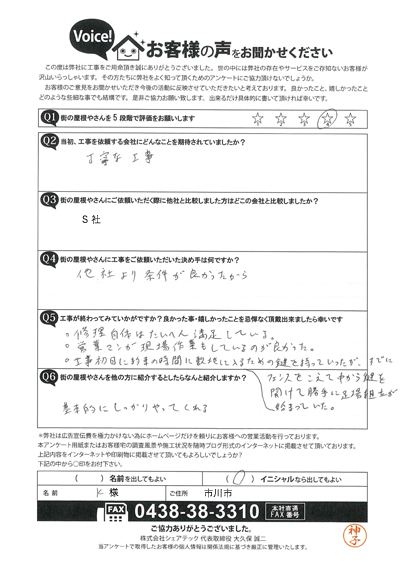 Voice!
お客様の声をお聞かせください
この度は弊社に工事をご用命頂き誠にありがとうございました。世の中には弊社の存在やサービスをご存知ないお客様が
沢山いらっしゃいます。その方たちに弊社をよく知って頂くためのアンケートにご協力頂けないでしょうか。
お客様のご意見をお聞かせいただき今後の活動に反映させていただきたいと考えております。良かったこと、嬉しかったこと
どのような些細な事でも結構です。是非ご協力お願い致します。出来るだけ具体的に書いて頂ければ幸いです。
Q1 街の屋根やさんを5段階で評価をお願いします ☆ ☆ ☆ ☆ ☆
Q2 当初、工事を依頼する会社にどんなことを期待されていましたか?
丁寧な工事
Q3 街の屋根やさんにご依頼いただく際に他社と比較しました方はどこの会社と比較しましたか?
S社
Q4 街の屋根やさんに工事をご依頼いただいた決め手は何ですか?
他社より条件が良かったから
Q5 工事が終わってみていかがですか?良かった事・嬉しかったことを忌憚なく頂戴出来ましたら幸いです
○修理自体はたいへん満足している。
○営業マンが現場作業もしているのが良かった。
○工事初日に約束の時間に敷地に入るための鍵を持っていったが、すでに
フェンスをこえて中から鍵を
開けて勝手に足場組立が
始まっていた。
Q6 街の屋根やさんを他の方に紹介するとしたらなんと紹介しますか?
基本的にしっかりやってくれる
※弊社は広告宣伝費を極力かけない為にホームページだけを頼りにお客様への営業活動を行っております。
本アンケート用紙またはお客様宅の調査風景や施工状況を随時ブログ形式のインターネットに掲載させて頂いております。
上記内容をインターネットや印刷物に掲載させて頂いてもよろしいでしょうか?
下記の中から〇印をお付け下さい。
( )名前を出してもよい (○)イニシャルなら出してもよい
名前 K 様 ご住所 市川市
FAX 0438-38-3310 本社直通 FAX番号
ご協力ありがとうございました。
株式会社シェアテック 代表取締役 大久保 誠二
当アンケートで取得したお客様の個人情報は関係法規に基づき厳正に管理いたします。
神子